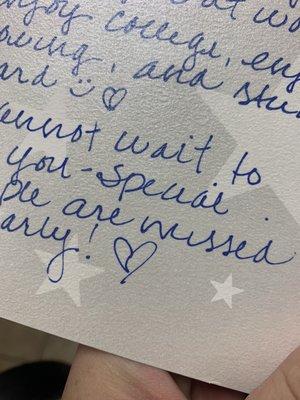 enjoy college, enj
and stu
ard ☺ ♡
annot wait to
you - special
ple are missed
arly! ♡